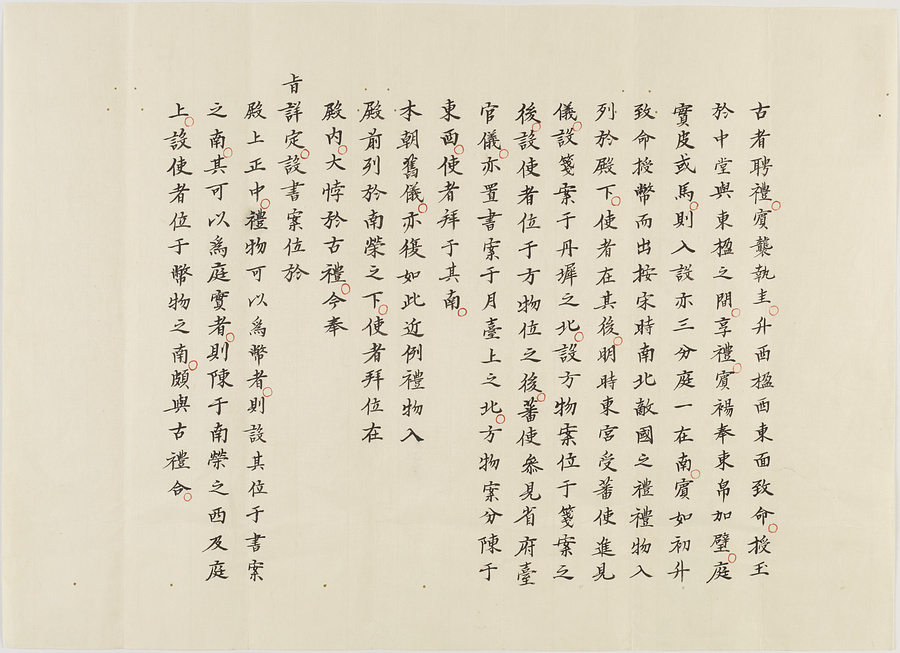 古者聘禮賓襲執圭升西楹西東面致命授玉
於中堂與東楹之間享禮賓裼奉東帛加璧庭
實皮或馬則入設亦三分庭一在南賓如初升
致命授幣而出按宋時南北敵國之禮禮物入
列於殿下使者在其後明時東宮受蕃使進見
儀設箋案于丹墀之北設方物案位于箋案之
後設使者位于方物位之後蕃使叅見省府臺
官儀亦置書案于月臺上之北方物案分陳于
東西使者拜于其南
本朝舊儀亦復如此近例禮物入
殿前列於南榮之下使者拜位在
殿內大悖於古禮今奉
旨詳定設書案位於
殿上正中禮物可以爲幣者則設其位于書案
之南其可以爲庭實者則陳于南榮之西及庭
上設使者位于幣物之南頗與古禮合